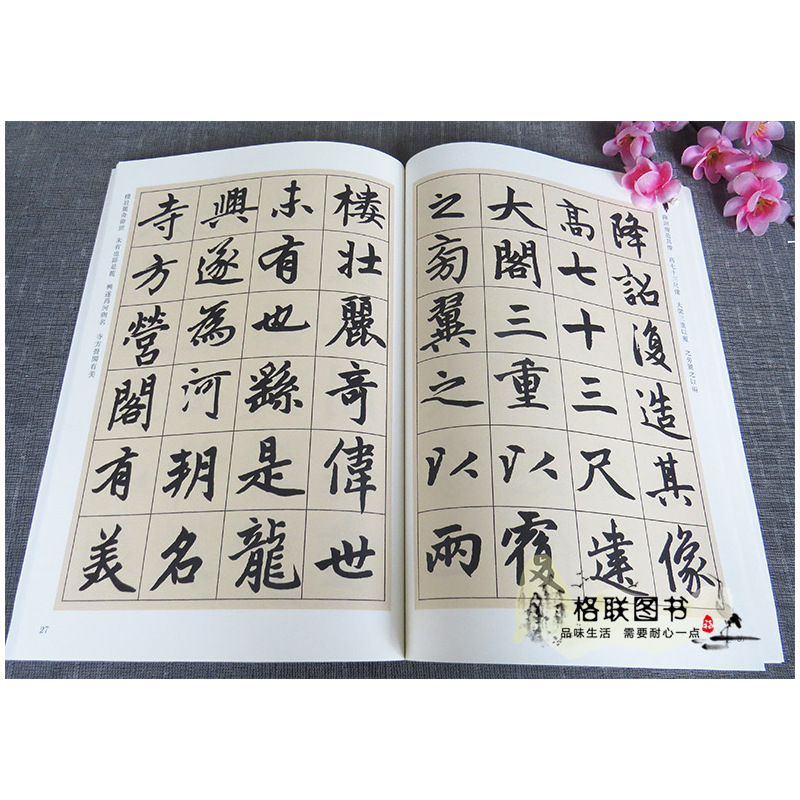 降詔復造其像
高七十三尺建
大閣三重以覆
之旁翼之以兩
樓壯麗奇偉世
未有也繇是龍
興遂為河朔名
寺方營閣有美
降詔復造其像　高七十三尺建　大閣三重以覆　之旁翼之以兩
樓壯麗奇偉世　未有也繇是龍　興遂爲河朔名　寺方營閣有美
27
格联图书
品味生活 需要耐心一点